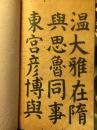 溫大雅在隋
與思魯同事
東宮彥博與